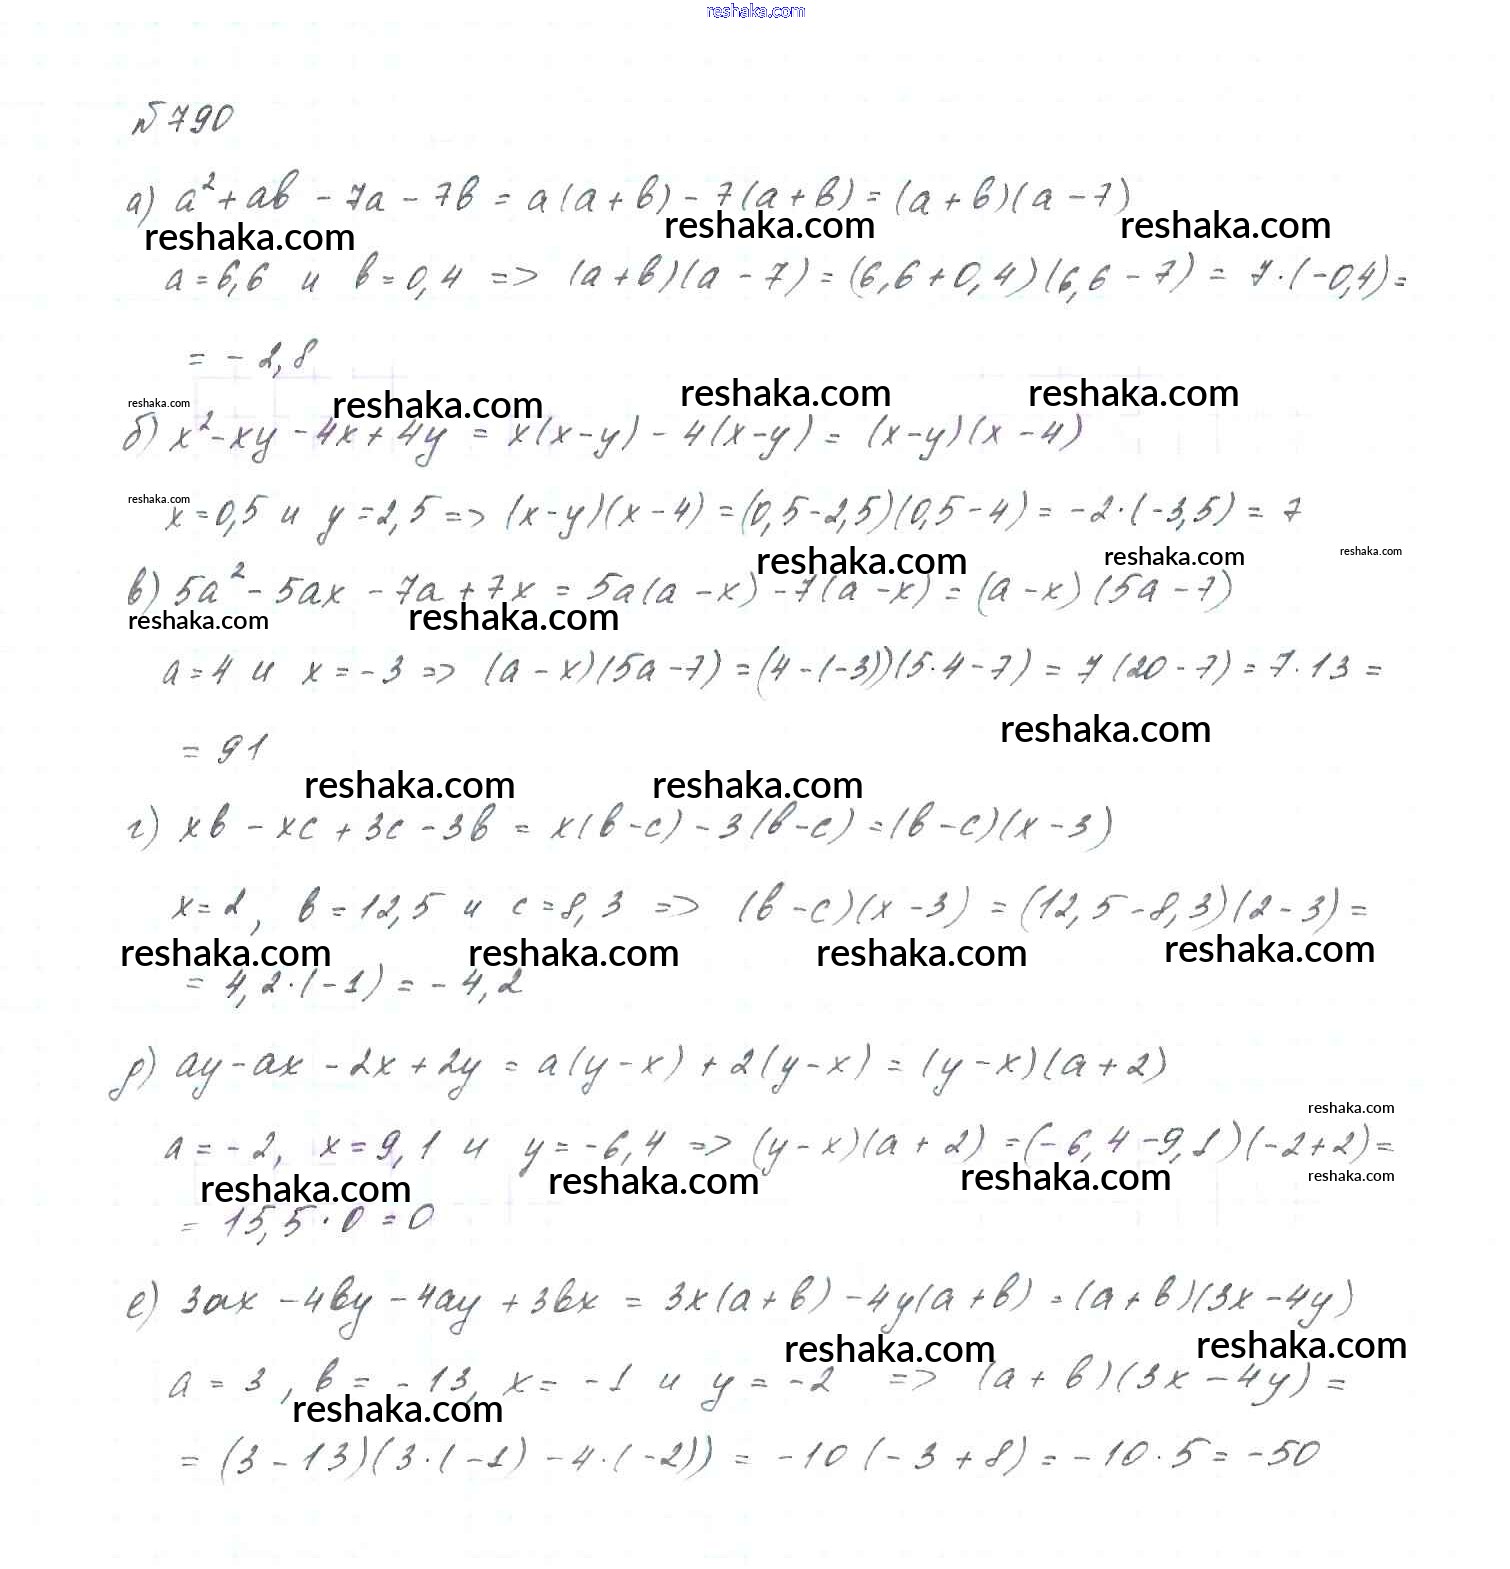 reshaka.com
№790
а) a² + ab - 7a - 7b = a(a+b) - 7(a+b) = (a+b)(a-7)
reshaka.com reshaka.com reshaka.com
a = 6,6 и b = 0,4 => (a+b)(a-7) = (6,6+0,4)(6,6-7) = 7·(-0,4) =
= -2,8
reshaka.com reshaka.com reshaka.com reshaka.com
б) x² - xy - 4x + 4y = x(x-y) - 4(x-y) = (x-y)(x-4)
reshaka.com
x = 0,5 и y = 2,5 => (x-y)(x-4) = (0,5-2,5)(0,5-4) = -2·(-3,5) = 7
reshaka.com reshaka.com reshaka.com
в) 5a² - 5ax - 7a + 7x = 5a(a-x) - 7(a-x) = (a-x)(5a-7)
reshaka.com reshaka.com
a = 4 и x = -3 => (a-x)(5a-7) = (4-(-3))(5·4-7) = 7(20-7) = 7·13 =
reshaka.com
= 91
reshaka.com reshaka.com
г) xb - xc + 3c - 3b = x(b-c) - 3(b-c) = (b-c)(x-3)
x = 2, b = 12,5 и c = 8,3 => (b-c)(x-3) = (12,5-8,3)(2-3) =
reshaka.com reshaka.com reshaka.com reshaka.com
= 4,2·(-1) = -4,2
д) ay - ax - 2x + 2y = a(y-x) + 2(y-x) = (y-x)(a+2)
reshaka.com
a = -2, x = 9,1 и y = -6,4 => (y-x)(a+2) = (-6,4-9,1)(-2+2) =
reshaka.com reshaka.com reshaka.com reshaka.com
= 15,5·0 = 0
е) 3ax - 4by - 4ay + 3bx = 3x(a+b) - 4y(a+b) = (a+b)(3x-4y)
reshaka.com reshaka.com
a = 3, b = -13, x = -1 и y = -2 => (a+b)(3x-4y) =
reshaka.com
= (3-13)(3·(-1) - 4·(-2)) = -10(-3+8) = -10·5 = -50